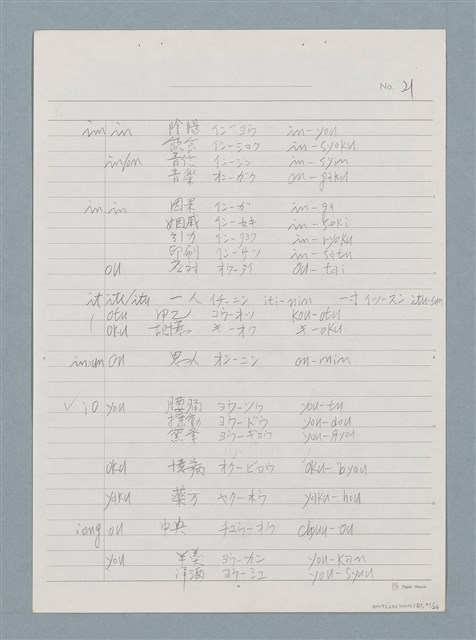 No. 21
im in 陰陽 イン-ヨウ in-you
飲食 イン-ショク in-syoku
in/on 音信 イン-シン in-sin
音楽 オン-ガク on-gaku
in in 因果 イン-ガ in-ga
姻戚 イン-セキ in-seki
引力 イン-リョク in-ryoku
印刷 イン-サツ in-satu
ou 応対 オウ-タイ ou-tai
it iti/itu 一人 イチ-ニン iti-nin 一寸 イッ-スン
otu 甲乙 コウ-オツ kou-otu
oku 記憶 キ-オク ki-oku
on 恩人 オン-ニン on-nin
✓ io you 腰痛 ヨウ-ツウ you-tu
ヨウ-ドウ you-dou
ヨウ-ギョウ you-gyou
oku 憶病 オク-ビョウ oku-byou
yaku 薬方 ヤク-ホウ yaku-hou
iong ou 中央 チュウ-オウ chuu-ou
you 羊羹 ヨウ-カン you-kan
洋酒 ヨウ-シュ you-syuu